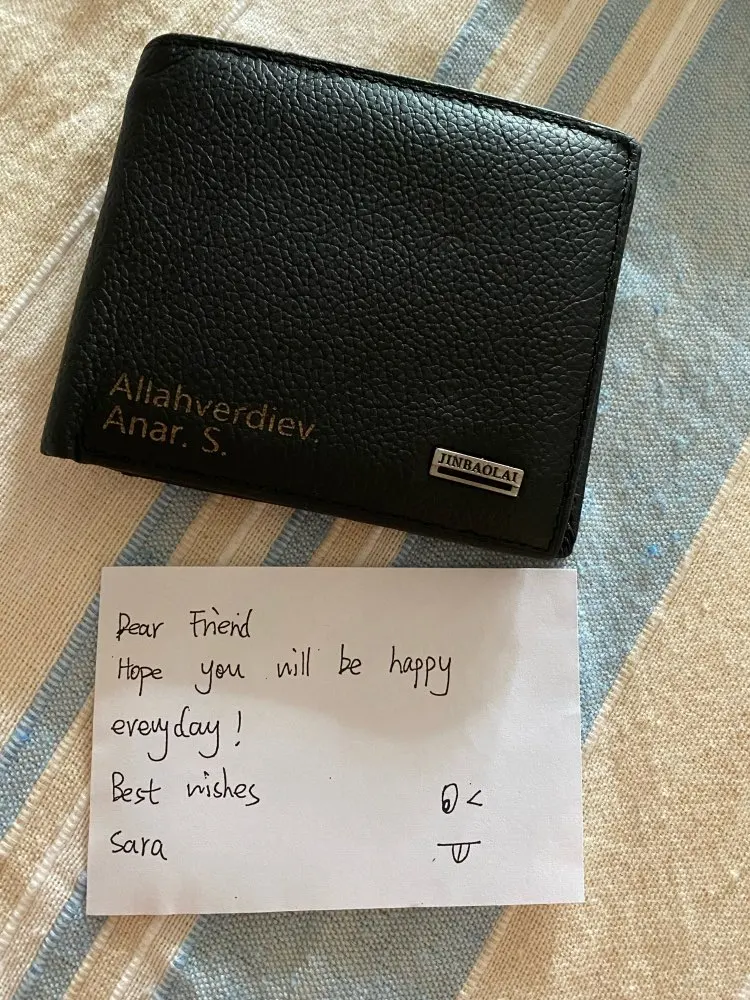 Allahverdiev.
Anar. S.
JINBAOLAI
Dear Friend
Hope you will be happy
everyday!
Best wishes
Sara